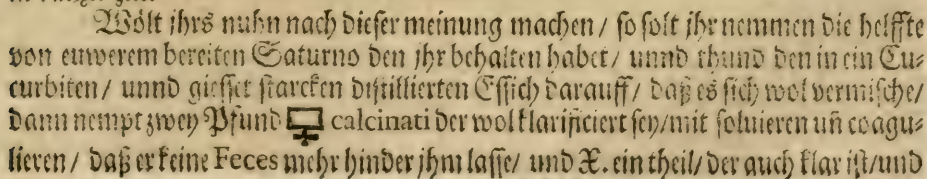 Wölt ihrs nuhn nach dieser meinung machen / so solt ihr nemmen die helffte
von euwerem bereiten Saturno den jhr behalten habet / unnd thund den in ein Cu⸗
curbiten / unnd giesset starcken distillierten Essich darauff / daß es sich wol vermische /
Dann nempt zwey Pfund 🜿 calcinati der wol klarificiert sey / mit soluieren uñ coagu⸗
lieren / daß er keine Feces mehr hinder jhm lasse / und X. ein theil / der auch klar ist / und